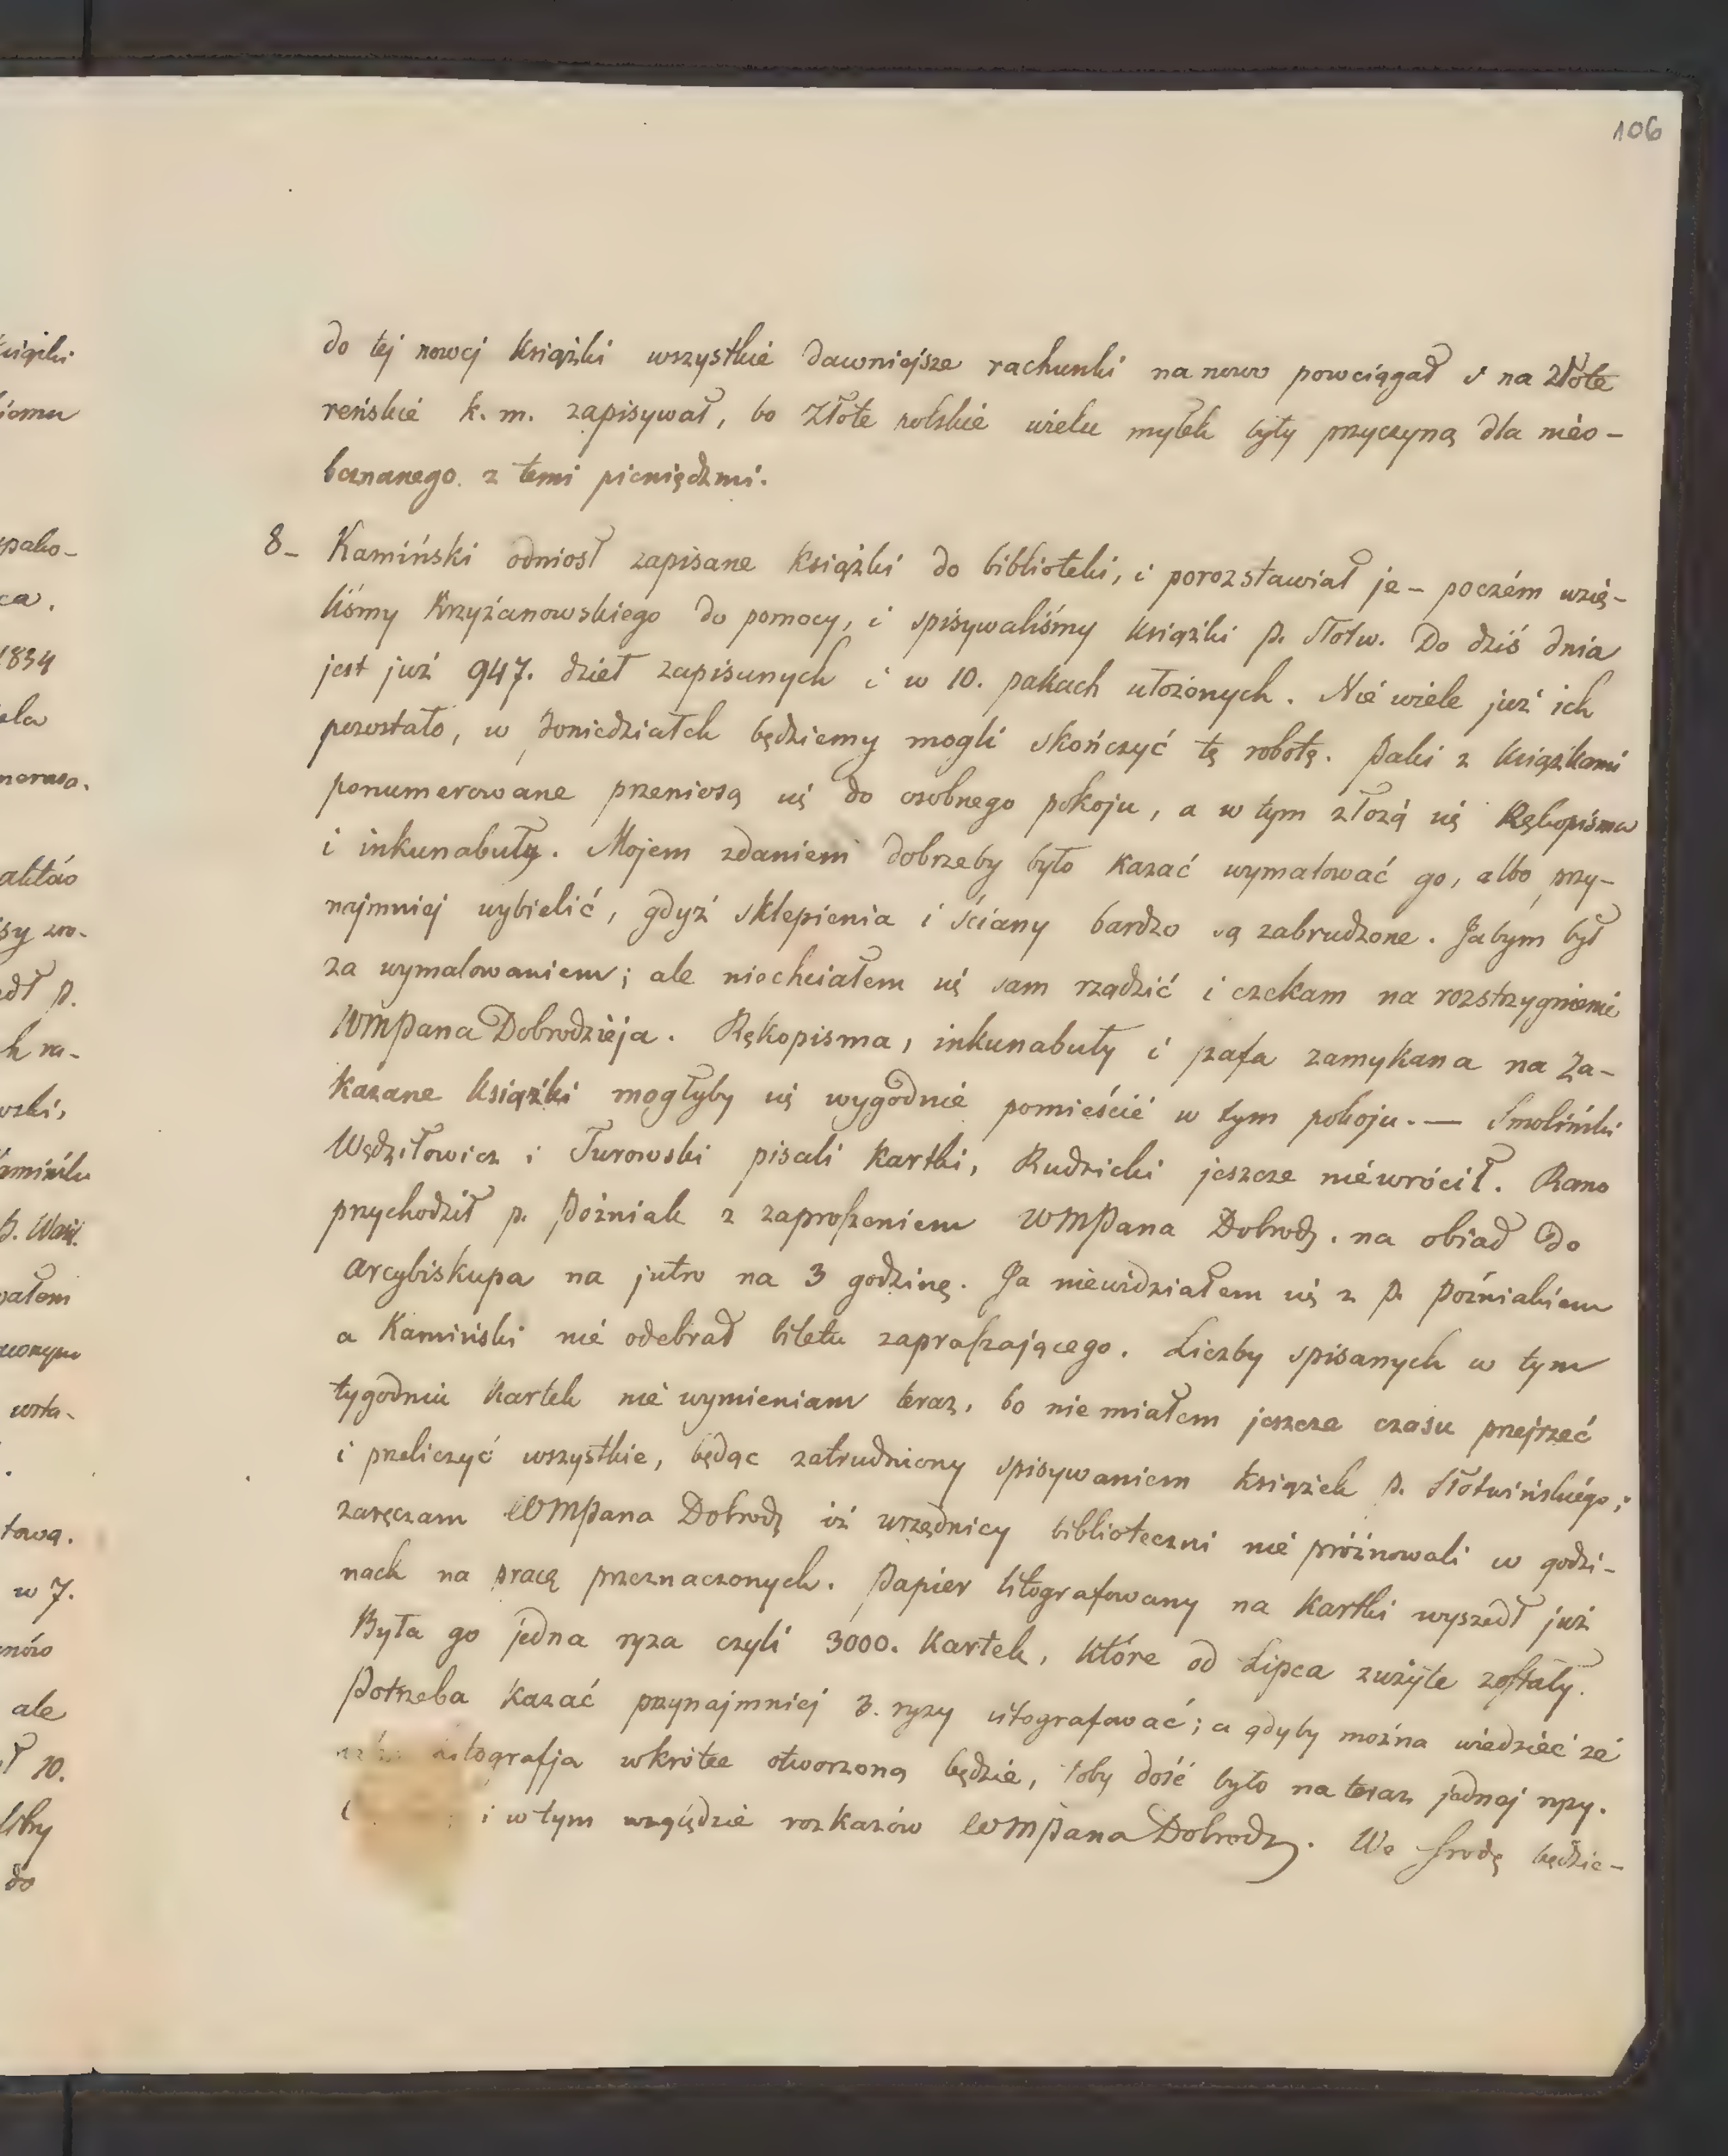 106
do tej nowej książki wszystkie dawniejsze rachunki na nowo powciągał i na złote
reńskie k. m. zapisywał, bo złote polskie wielu myłek były przyczyną dla nieo-
beznanego z temi pieniędzmi.
8- Kamiński odniosł zapisane książki do biblioteki, i porozstawiał je - poczém wzię-
liśmy Krzyżanowskiego do pomocy, i spisywaliśmy książki p. Słotw. Do dziś dnia
jest już 947. dzieł zapisanych i w 10. pakach ułożonych. Nie wiele już ich
pozostało, w poniedziałek będziemy mogli skończyć tę robotę. Paki z książkami
ponumerowane przeniosą się do osobnego pokoju, a w tym złożą się Rękopisma
i inkunabuły. Mojem zdaniem dobrzeby było kazać wymalować go, albo przy-
najmniej wybielić, gdyż sklepienia i ściany bardzo są zabrudzone. Jabym był
za wymalowaniem; ale niechciałem się sam rządzić i czekam na rozstrzygnienie
WMPana Dobrodzieja. Rękopisma, inkunabuły i szafa zamykana na Za-
kazane książki mogłyby się wygodnie pomieścić w tym pokoju. — Smoliński
Wędziłowicz i Turowski pisali kartki, Rudzicki jeszcze niewrócił. Rano
przychodził p. Poźniak z zaproszeniem WMPana Dobrodz. na obiad do
Arcybiskupa na jutro na 3 godzinę. Ja niewidziałem się z p. Poźniakiem
a Kamiński nie odebrał biletu zapraszającego. Liczby spisanych w tym
tygodniu kartek nie wymieniam teraz, bo nie miałem jeszcze czasu przejrzeć
i przeliczyć wszystkie, będąc zatrudniony spisywaniem książek p. Słotwińskiego;
zaręczam WMPana Dobrodz iż urzędnicy biblioteczni nie próżnowali w godzi-
nach na pracę przeznaczonych. Papier litografowany na kartki wyszedł już
Była go jedna ryza czyli 3000. kartek, które od Lipca zużyte zostały.
Potrzeba kazać przynajmniej 3. ryzy litografować; a gdyby można wiedzieć że
litografja wkrótce otworzoną będzie, toby dość było na teraz jednej ryzy.
i w tym względzie rozkazów WMPana Dobrodz. We środę będzie-